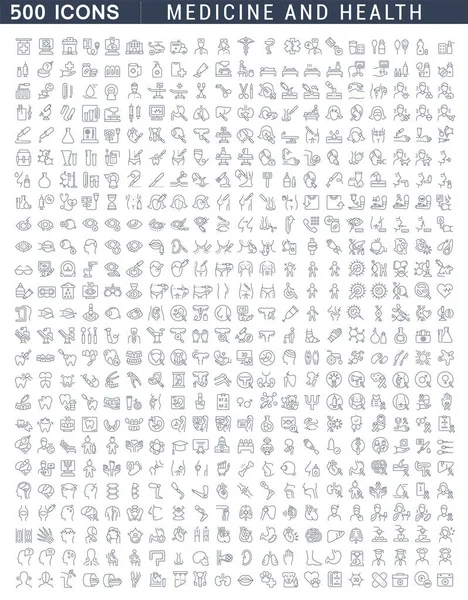 500 ICONS
MEDICINE AND HEALTH